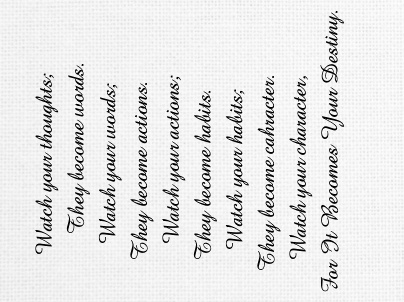 Watch your thoughts;
They become words.
Watch your words;
They become actions.
Watch your actions;
They become habits.
Watch your habits;
They become cahracter.
Watch your character,
For It Becomes Your Destiny.